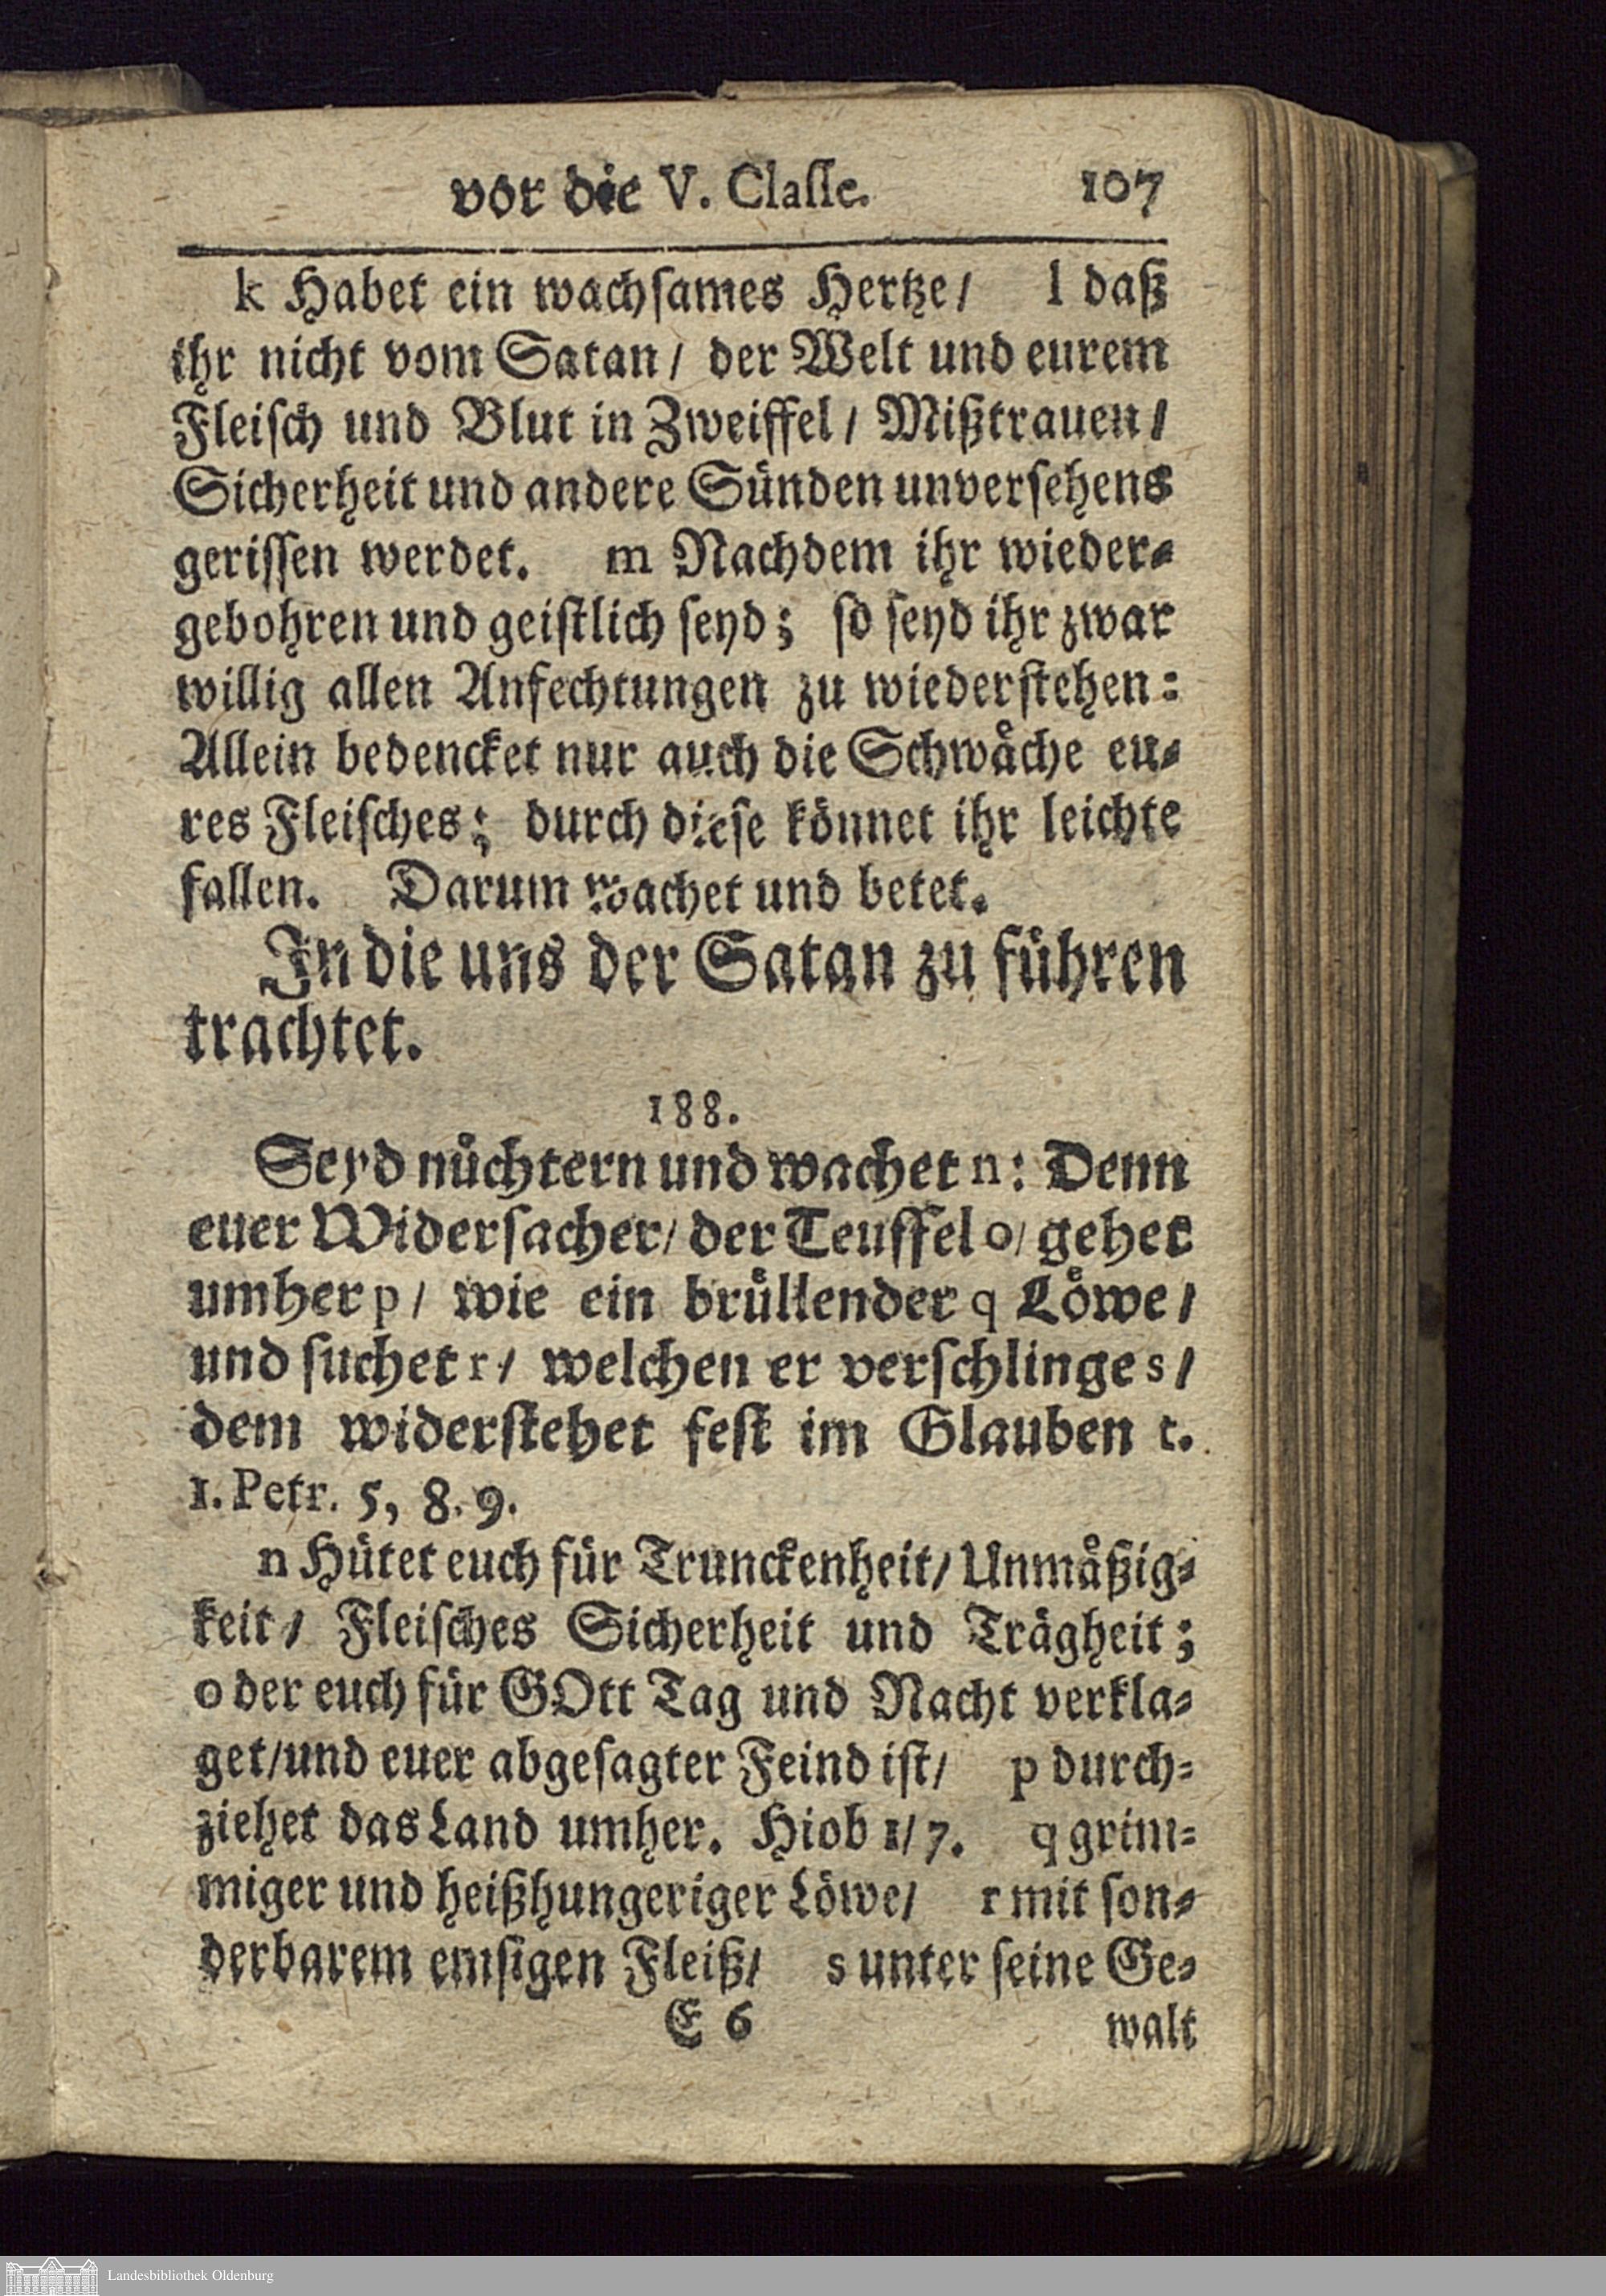 vor die V. Classe. 107
k Habet ein wachsames Hertze/ l daß
ihr nicht vom Satan/ der Welt und eurem
Fleisch und Blut in Zweiffel/ Mißtrauen/
Sicherheit und andere Sünden unversehens
gerissen werdet. m Nachdem ihr wieder-
gebohren und geistlich seyd; so seyd ihr zwar
willig allen Anfechtungen zu wiederstehen:
Allein bedencket nur auch die Schwäche eu-
res Fleisches; durch diese könnet ihr leichte
fallen. Darum wachet und betet.
In die uns der Satan zu führen
trachtet.
188.
Seyd nüchtern und wachet n: Denn
euer Widersacher/ der Teuffel o/ gehet
umher p/ wie ein brüllender q Löwe/
und suchet r/ welchen er verschlinge s/
dem widerstehet fest im Glauben t.
1. Petr. 5, 8. 9.
n Hütet euch für Trunckenheit/ Unmäßig-
keit/ Fleisches Sicherheit und Trägheit;
o der euch für GOtt Tag und Nacht verkla-
get/und euer abgesagter Feind ist/ p durch-
ziehet das Land umher. Hiob 1/7. q grim-
miger und heißhungeriger Löwe/ r mit son-
derbarem emsigen Fleiß/ s unter seine Ge-
E 6 walt
Landesbibliothek Oldenburg